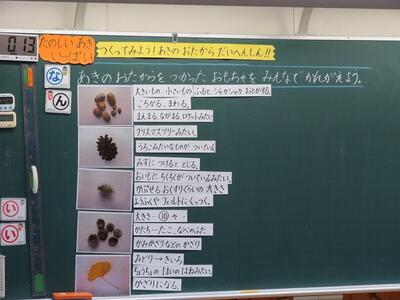 013
たのしい あき いっぱい
つくってみよう！あきの おたから だいへんしん！！
な
ん
あきの おたからを つかった おもちゃを みんなで かんがえよう。
大きいもの、小さいもの ふると、シャカシャカ おとがする。
ころがる、まわる。
まんまる、ながまる、ロケットみたい
クリスマスツリーみたい。
うろこみたいなものが ついている
みずに つけると とじる。
おいもに ちくちくが ついているみたい。
かぷせる おくすりくらいの 大きさ
ようふくや フェルトに くっつく。
大きさ…⑩や
かたち…たこ、なべのふた
かみかざりなどの かざり
みどり→きいろ
ちょうちょの はいの はねみたい。
かざりになる。
い
り